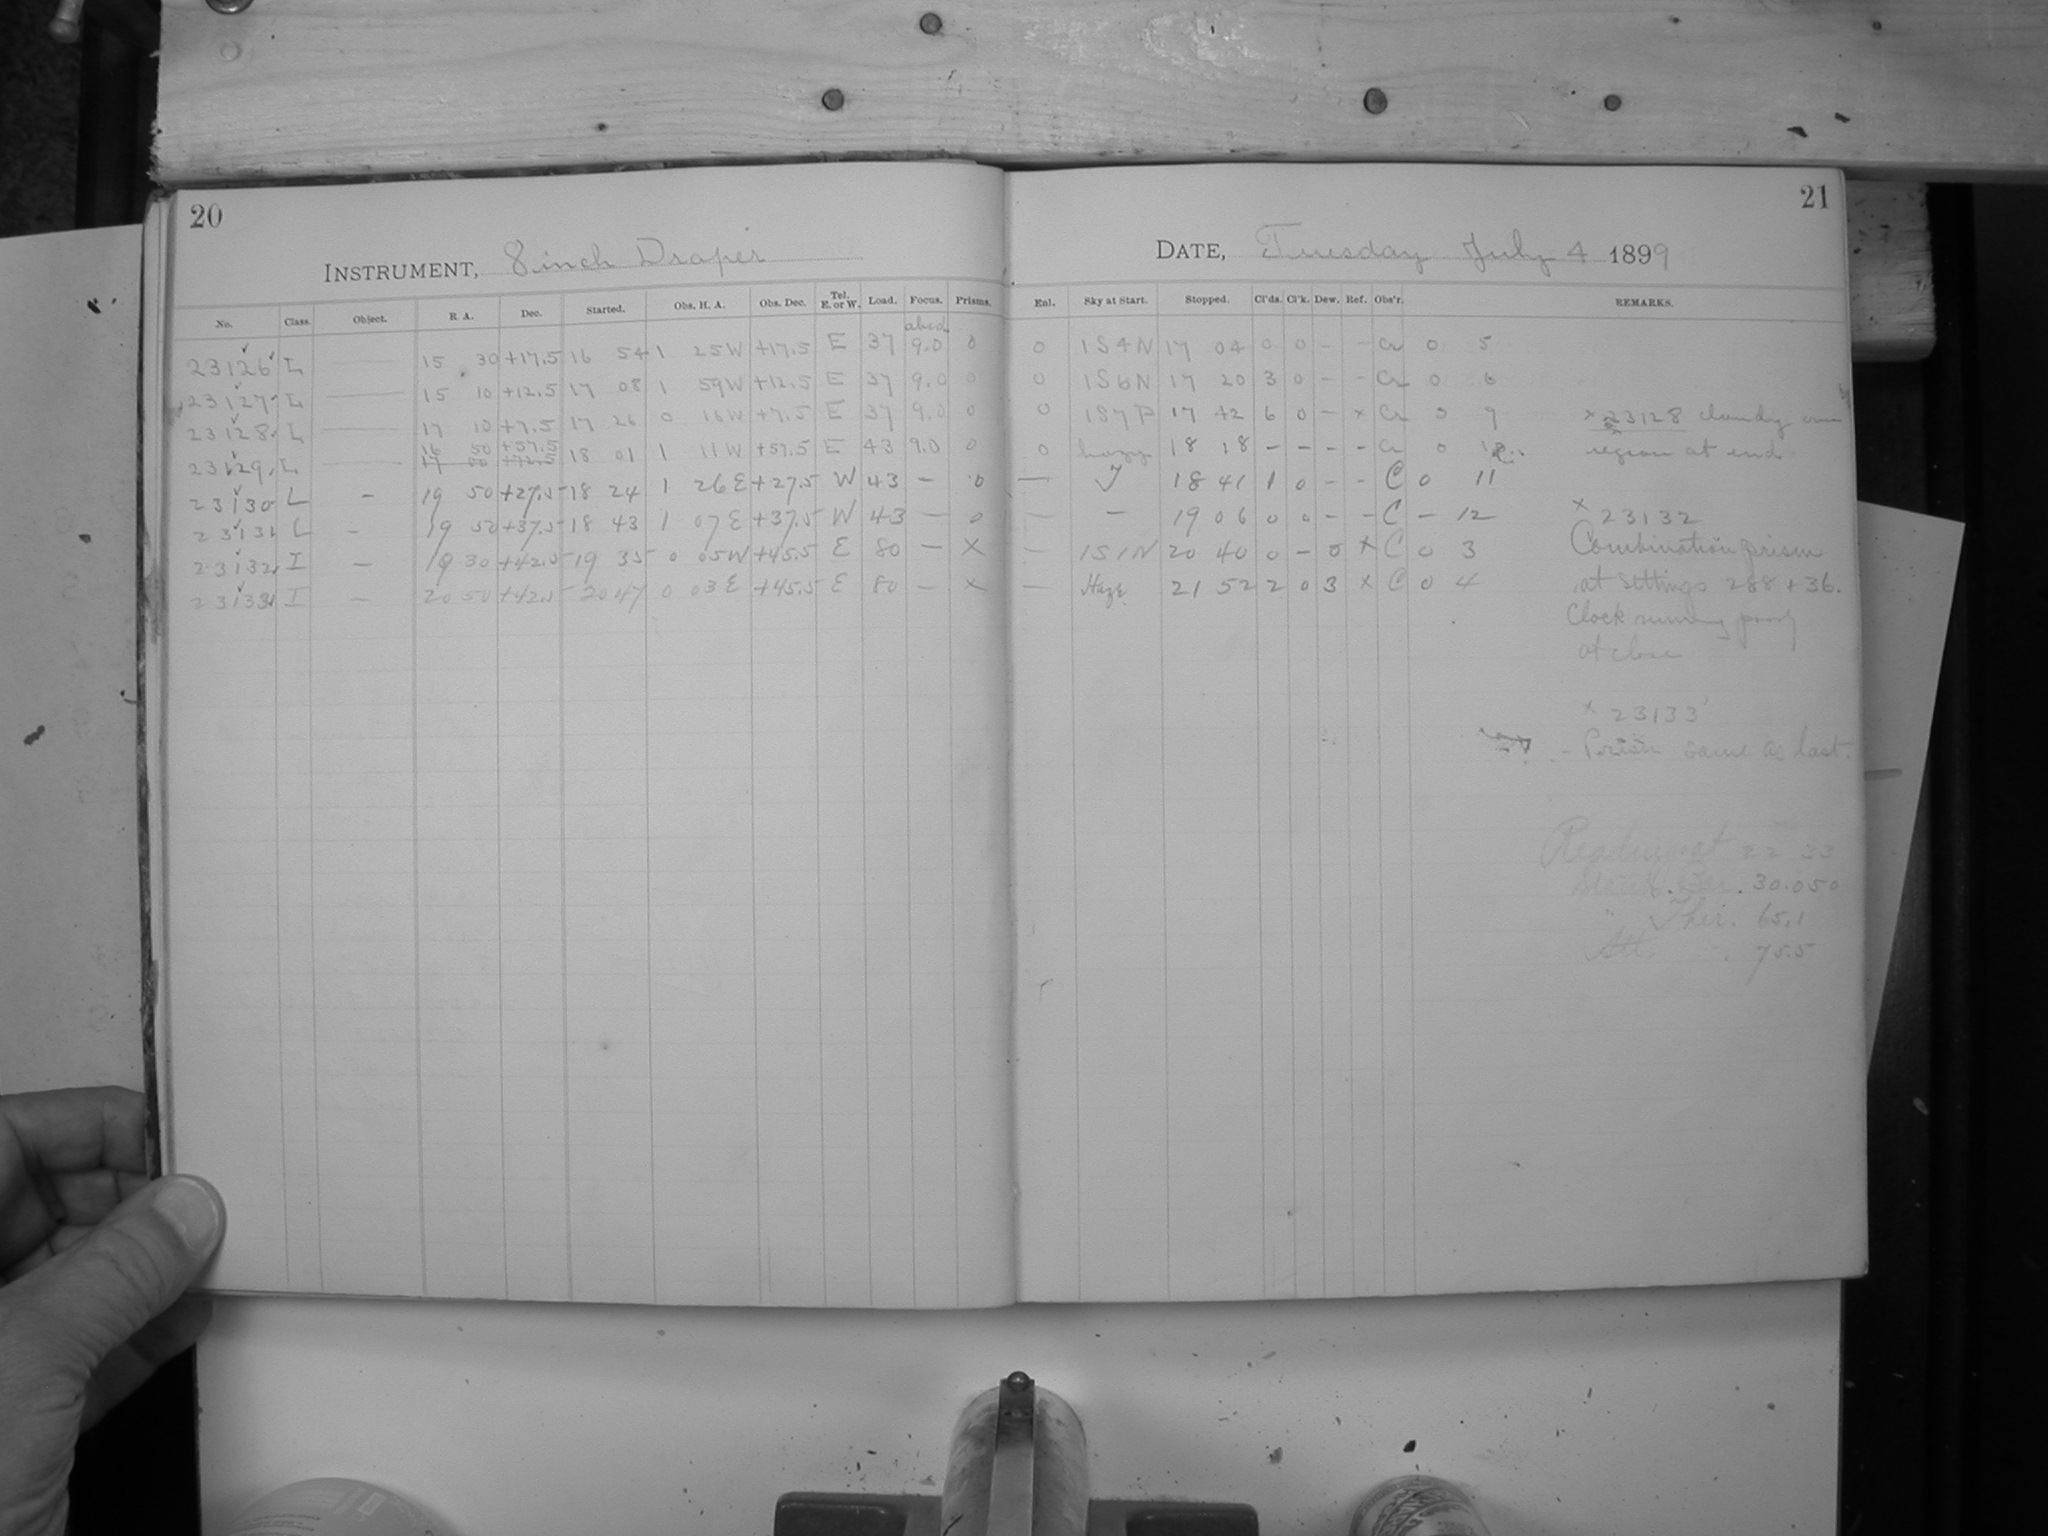 20
21
INSTRUMENT, 8 inch Draper
DATE, Tuesday July 4 1899
No. Class. Object. R. A. Dec. Started. Obs. H. A. Obs. Dec. Tel. E. or W. Load. Focus. Prisms. Enl. Sky at Start. Stopped. Cl'ds. Cl'k. Dew. Ref. Obs'r. REMARKS.
abcd
23126 L — 15 30 +17.5 16 54 1 25W +17.5 E 37 9.0 0 0 1S4N 17 04 0 0 - - Cr 0 5
23127 L — 15 10 +12.5 17 08 1 59W +12.5 E 37 9.0 0 0 1S6N 17 20 3 0 - - Cr 0 6
23128 L — 17 10 +7.5 17 26 0 16W +7.5 E 37 9.0 0 0 1S7P 17 42 6 0 - x Cr 0 9 x 23128 cloudy over
16 50 +57.5
23129 L — 17 50 +72.5 18 01 1 11W +57.5 E 43 9.0 0 hazy 18 18 - - - - Cr 0 region at end
23130 L - 19 50 +27.5 18 24 1 26E +27.5 W 43 - 0 — 18 41 1 0 - - C 0 11
23131 L - 19 50 +37.5 18 43 1 07E +37.5 W 43 - 0 — - 19 06 0 0 - - C - 12 x 23132
23132 I - 19 30 +42.5 19 35 0 05W +45.5 E 80 - X — 1S1N 20 40 0 - 0 x C 0 3 Combination prism
23133 I - 20 50 +42.5 20 47 0 03E +45.5 E 80 - x — Haze 21 52 2 0 3 x C 0 4 at settings 288 + 36.
Clock running poorly
at close
x 23133
- Prism same as last.
Reading at 22 33
Bar. 30.050
" Ther. 65.1
Att. 75.5